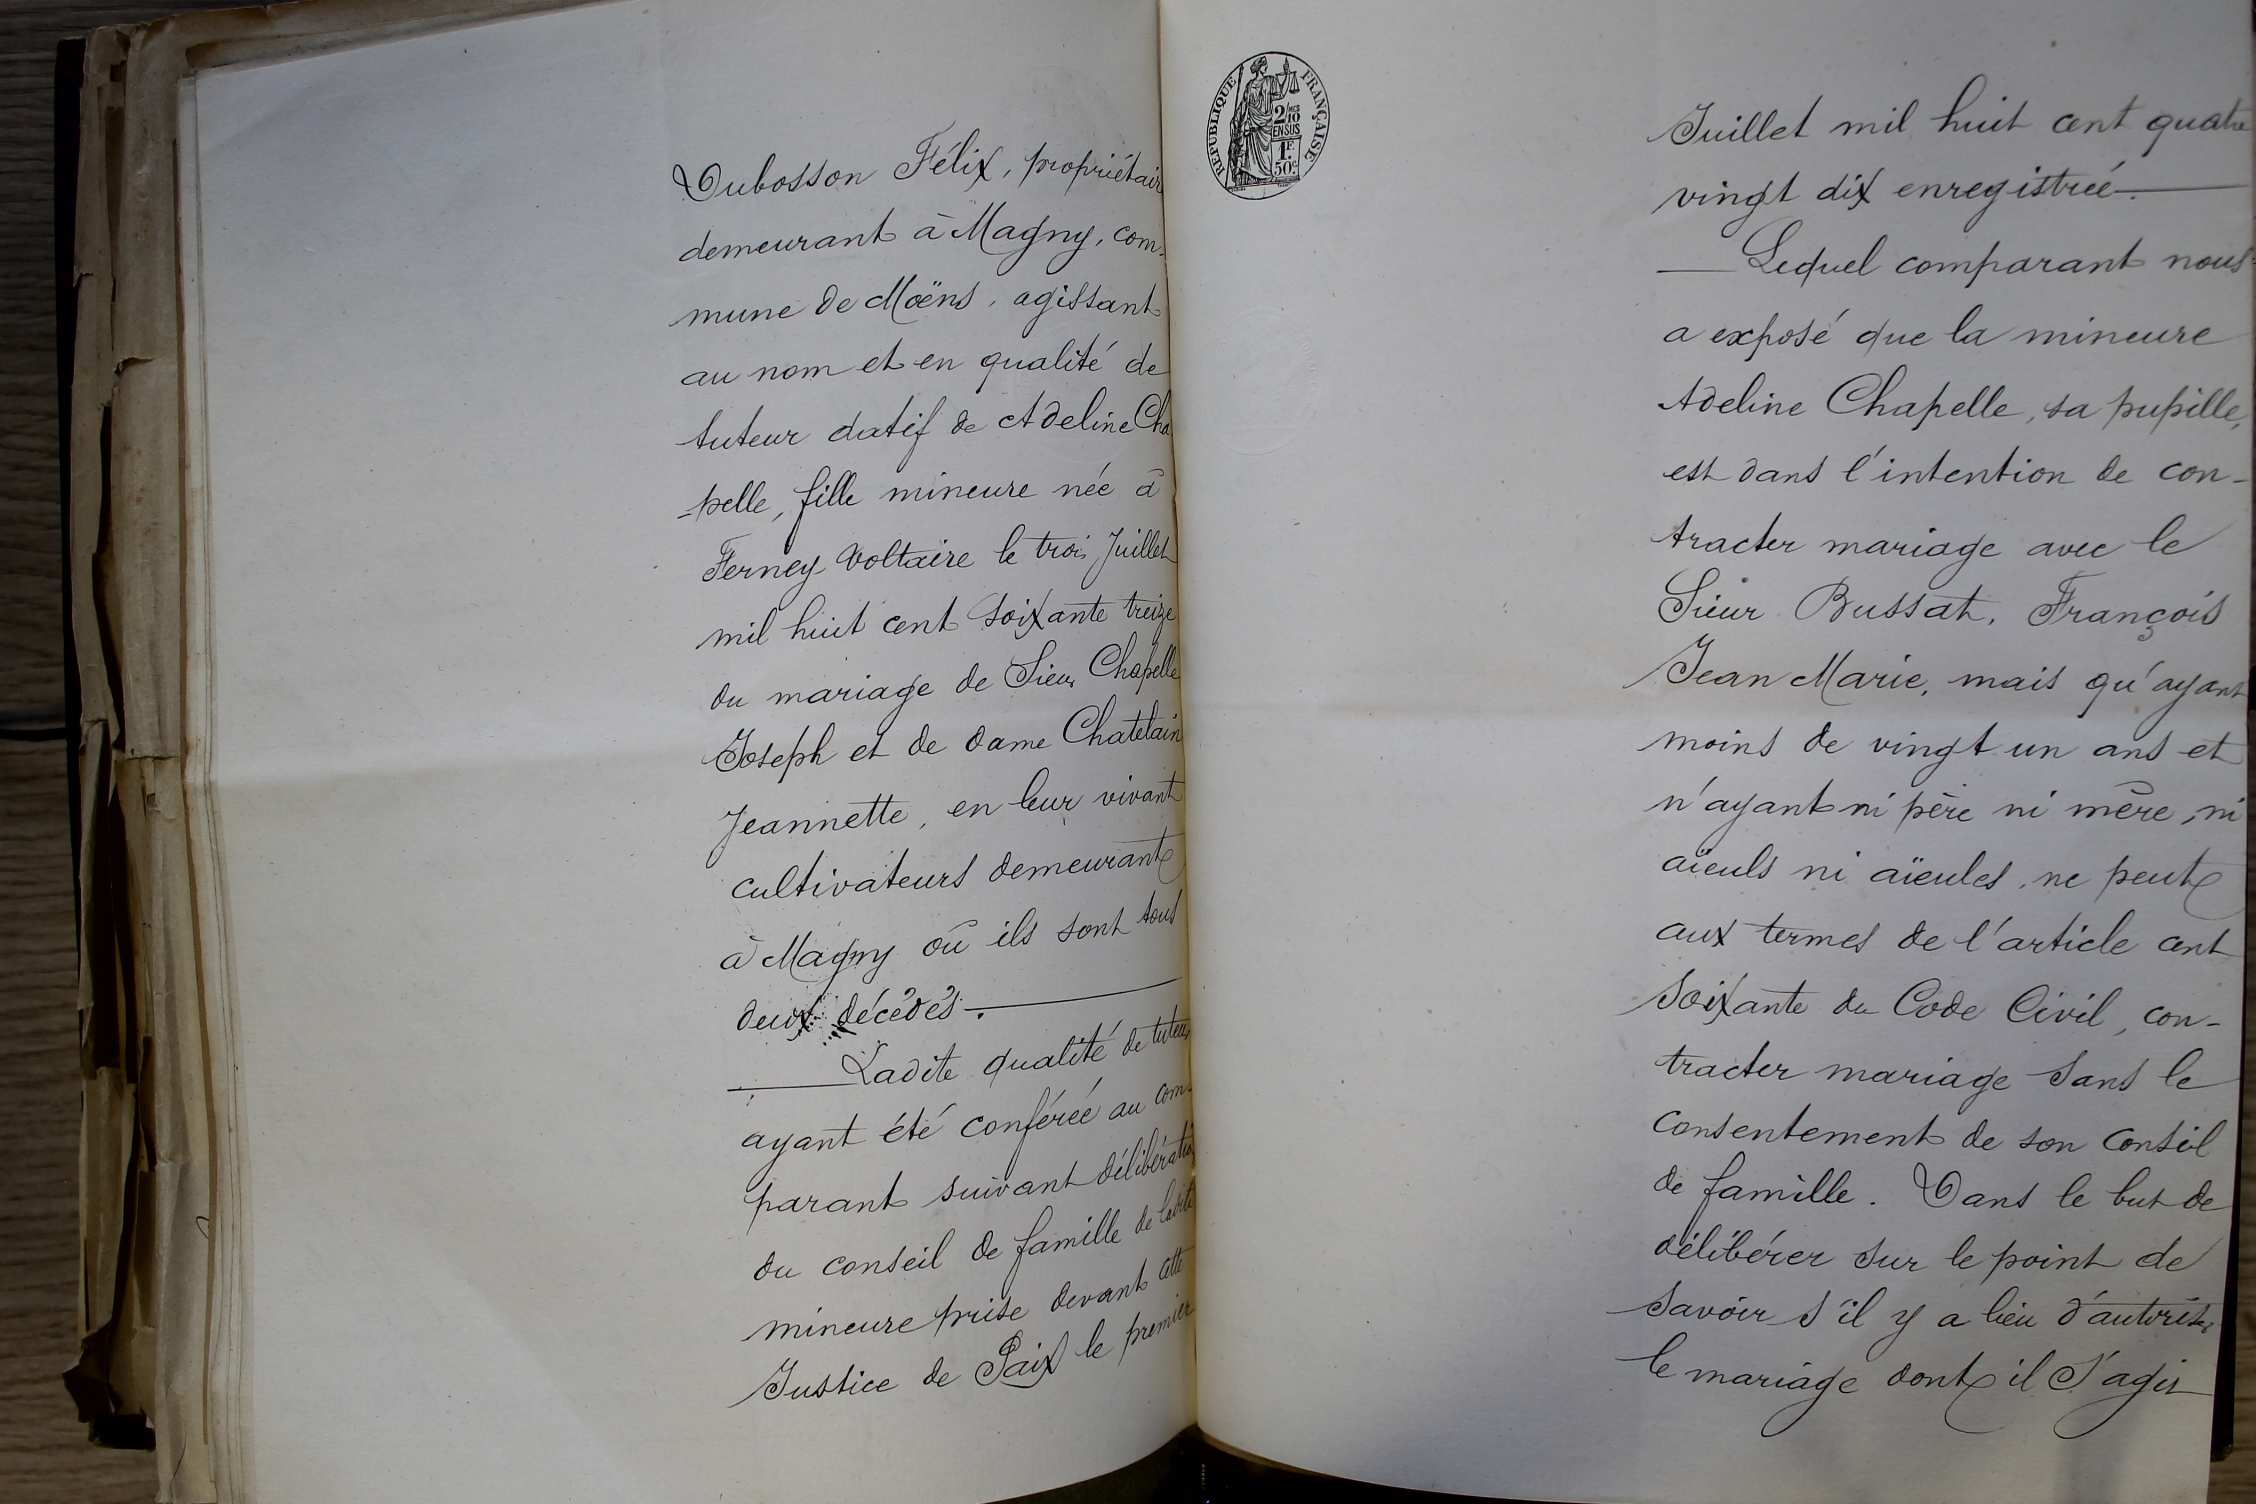 Dubosson Félix, propriétaire
demeurant à Magny, com-
mune de Moëns, agissant
au nom et en qualité de
tuteur datif de Adeline Cha
-pelle, fille mineure née à
Ferney Voltaire le trois Juillet
mil huit cent soixante treize
du mariage de Sieur Chapelle
Joseph et de dame Chatelain
Jeannette, en leur vivant
cultivateurs demeurant
à Magny où ils sont tous
deux décédés.
Ladite qualité de tuteur
ayant été conférée au com-
parant suivant délibération
du conseil de famille de ladite
mineure prise devant cette
Justice de Paix le premier
RÉPUBLIQUE FRANÇAISE
2/10
EN SUS
1F.
50c.
Juillet mil huit cent quatre
vingt dix enregistrée.
Lequel comparant nous
a exposé que la mineure
Adeline Chapelle, sa pupille,
est dans l'intention de con-
tracter mariage avec le
Sieur Bussat, François
Jean Marie, mais qu'ayant
moins de vingt un ans et
n'ayant ni père ni mère, ni
aïeuls ni aïeules, ne peut
aux termes de l'article cent
soixante du Code Civil, con-
tracter mariage sans le
consentement de son conseil
de famille. Dans le but de
délibérer sur le point de
savoir s'il y a lieu d'autoriser
le mariage dont il s'agit